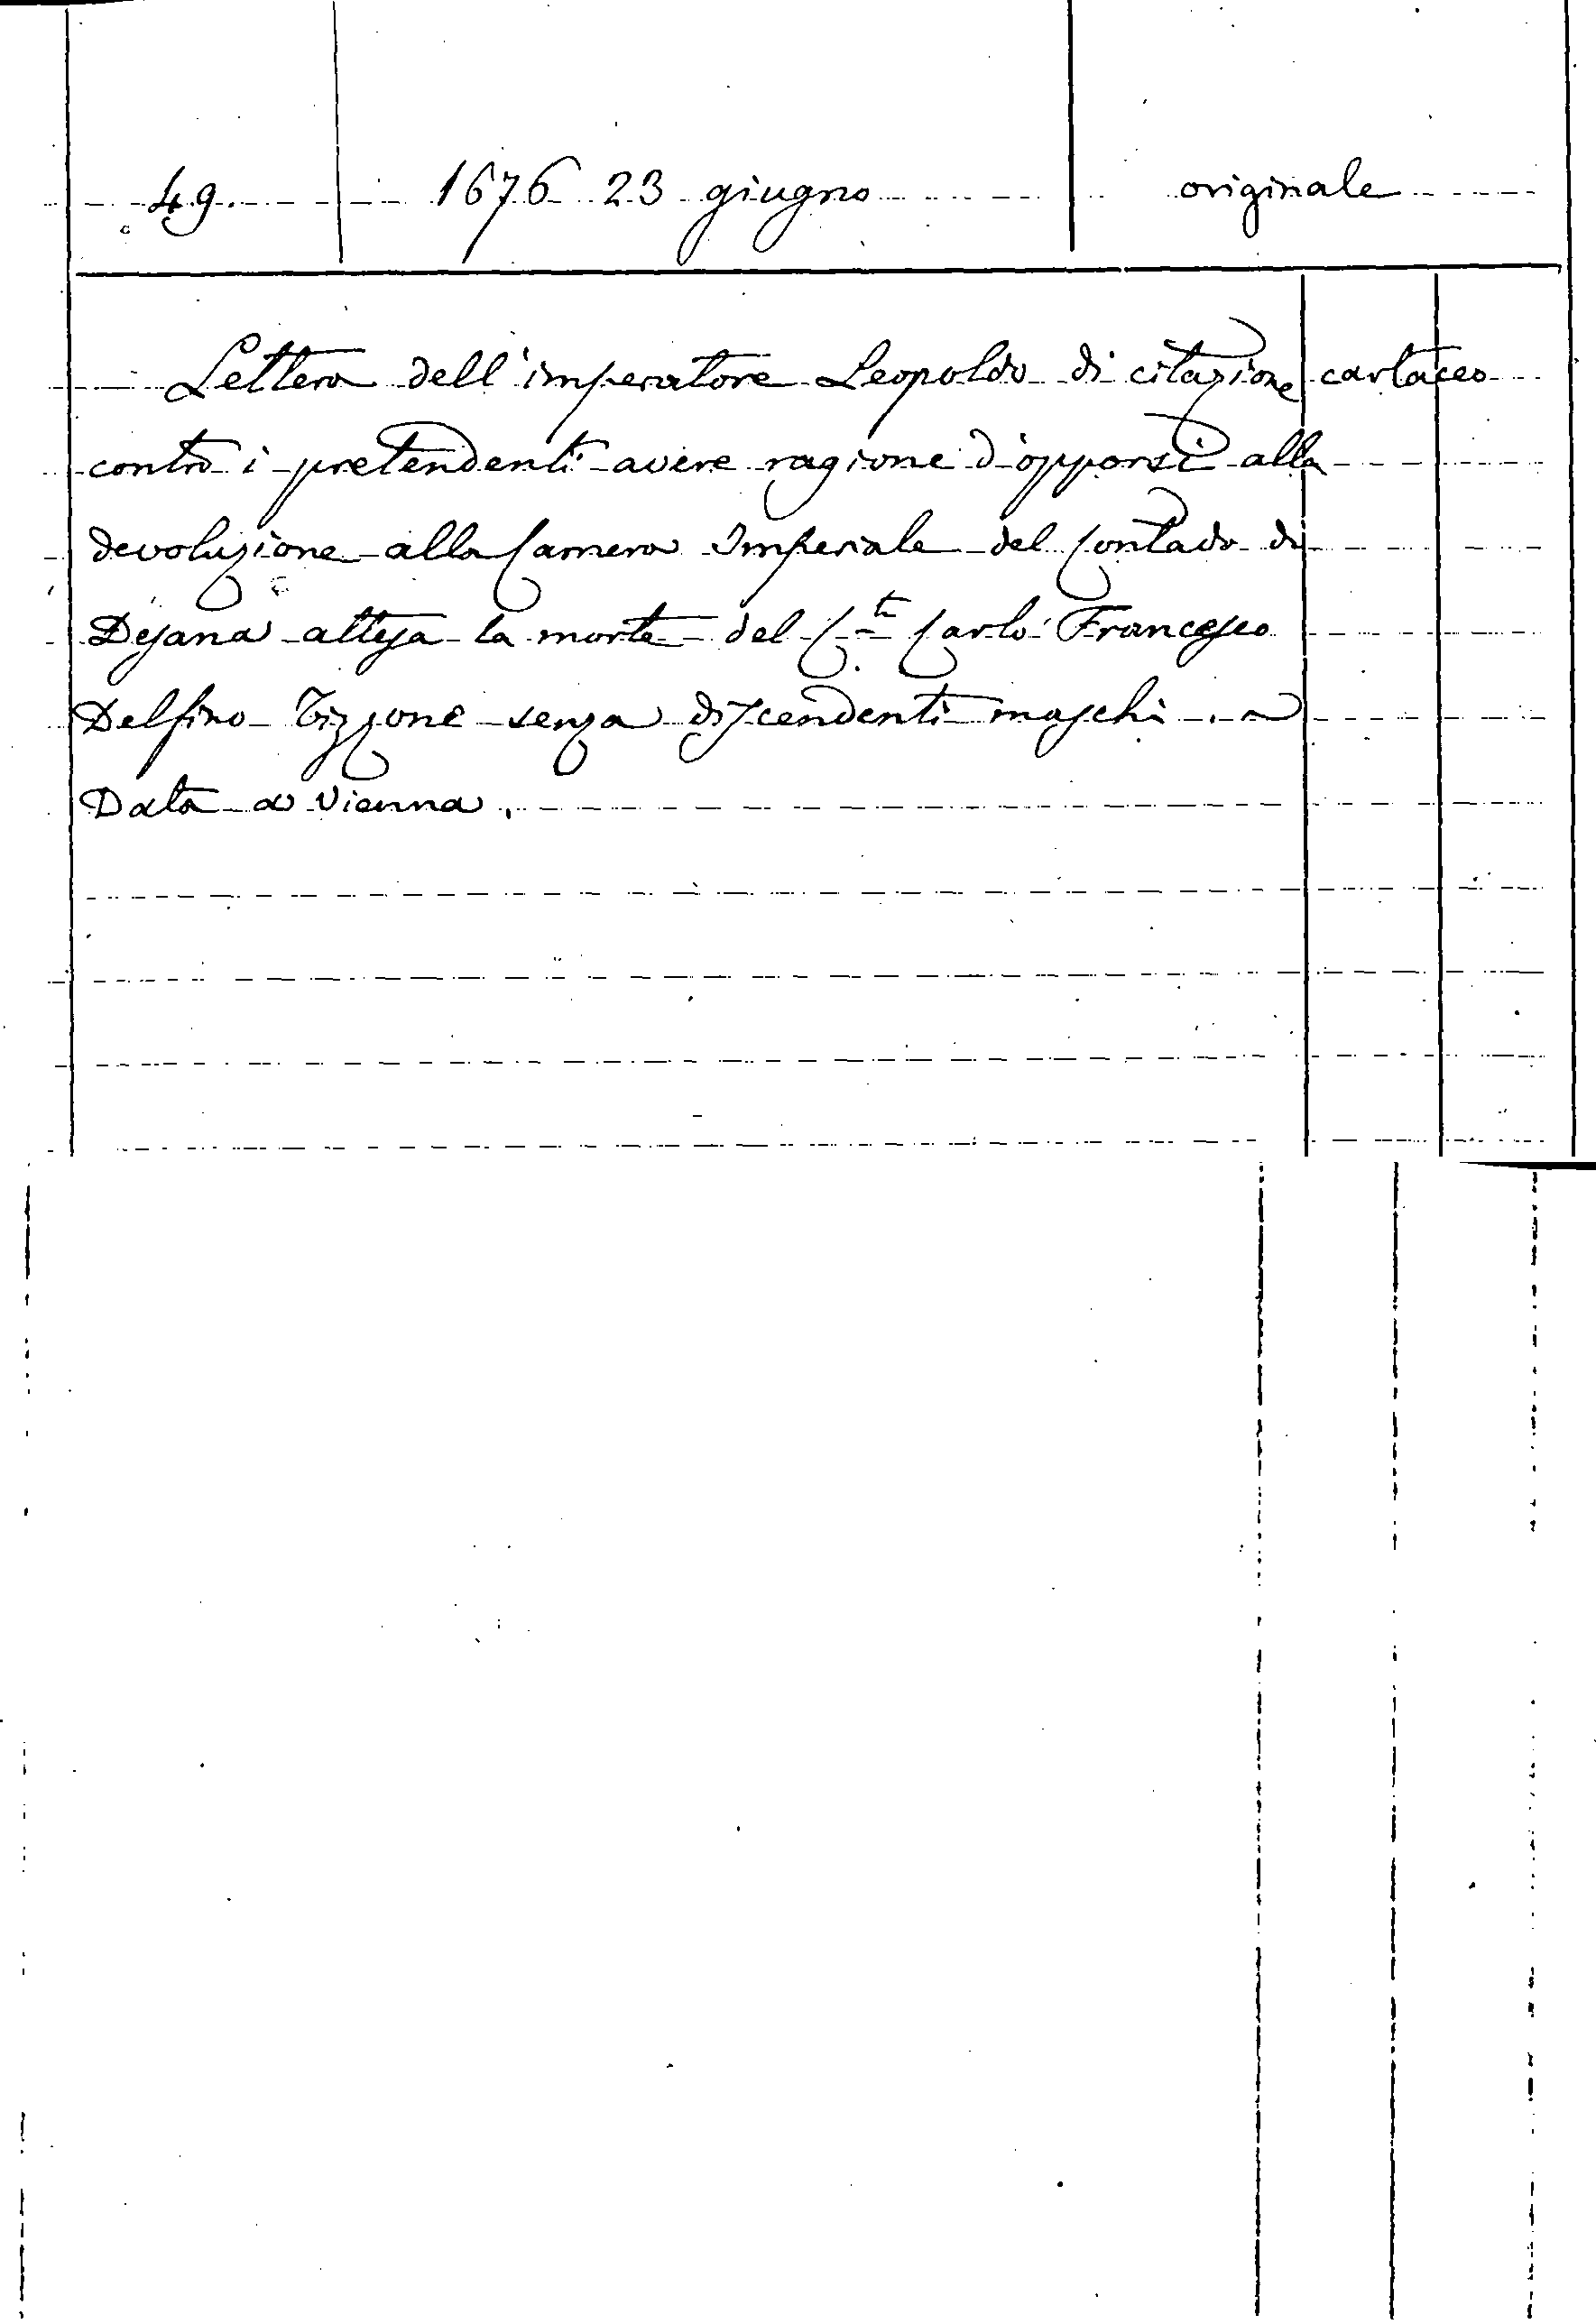 49. 1676 23 giugno originale
Lettera dell'imperatore Leopoldo di citazione cartaceo
contro i pretendenti avere ragione d'opporsi alla
devoluzione alla Camera Imperiale del Contado di
Desana attesa la morte del C.te Carlo Francesco
Delfino Tizzone senza discendenti maschi. ~
Data a Vienna.